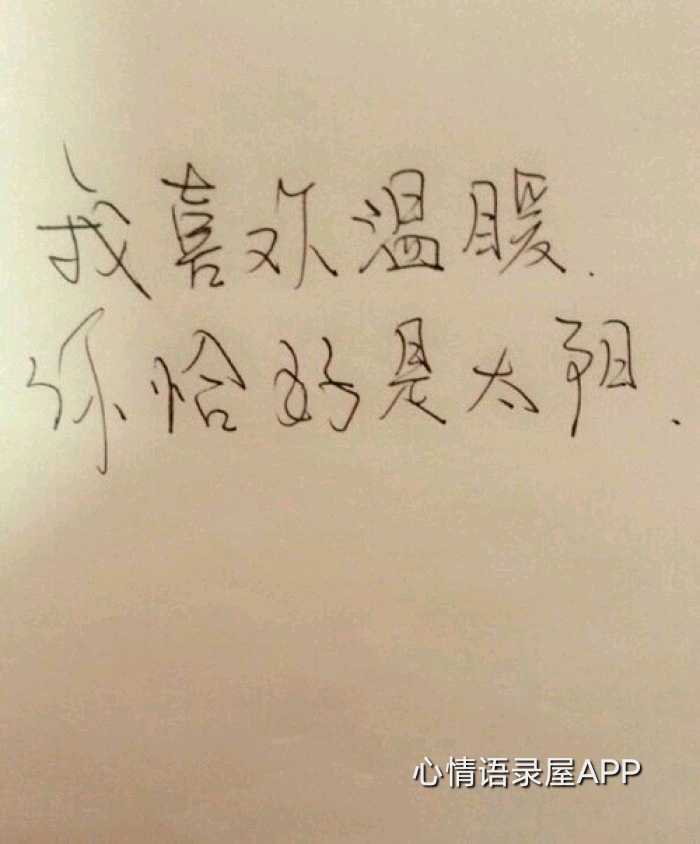 我喜欢温暖.
你恰好是太阳.
心情语录屋APP